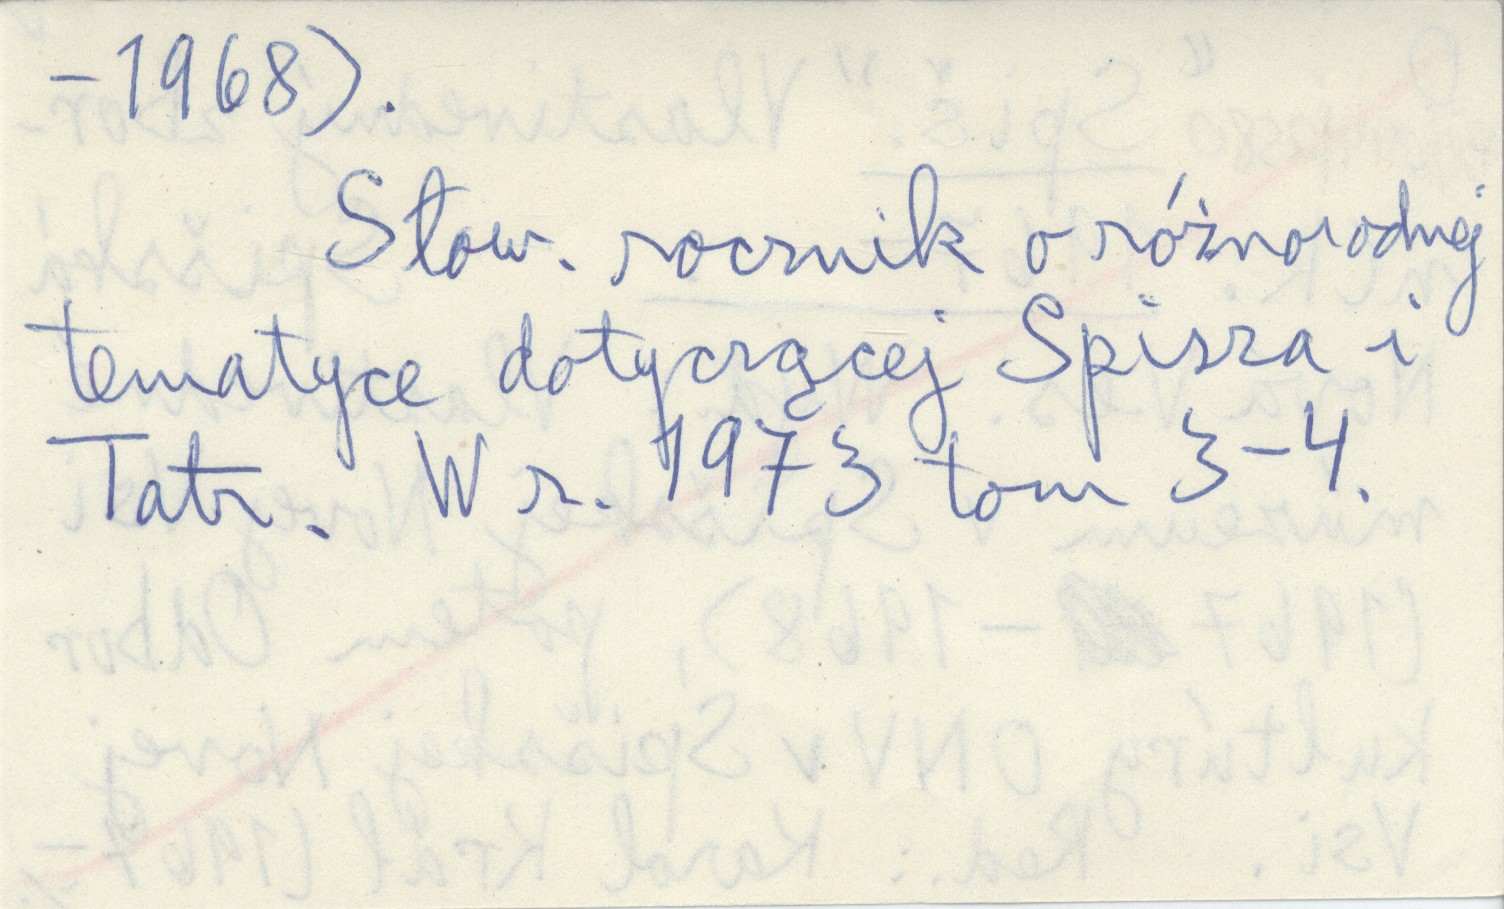 -1968).
Słow. rocznik o różnorodnej
tematyce dotyczącej Spisza i
Tatr. W r. 1973 tom 3-4.